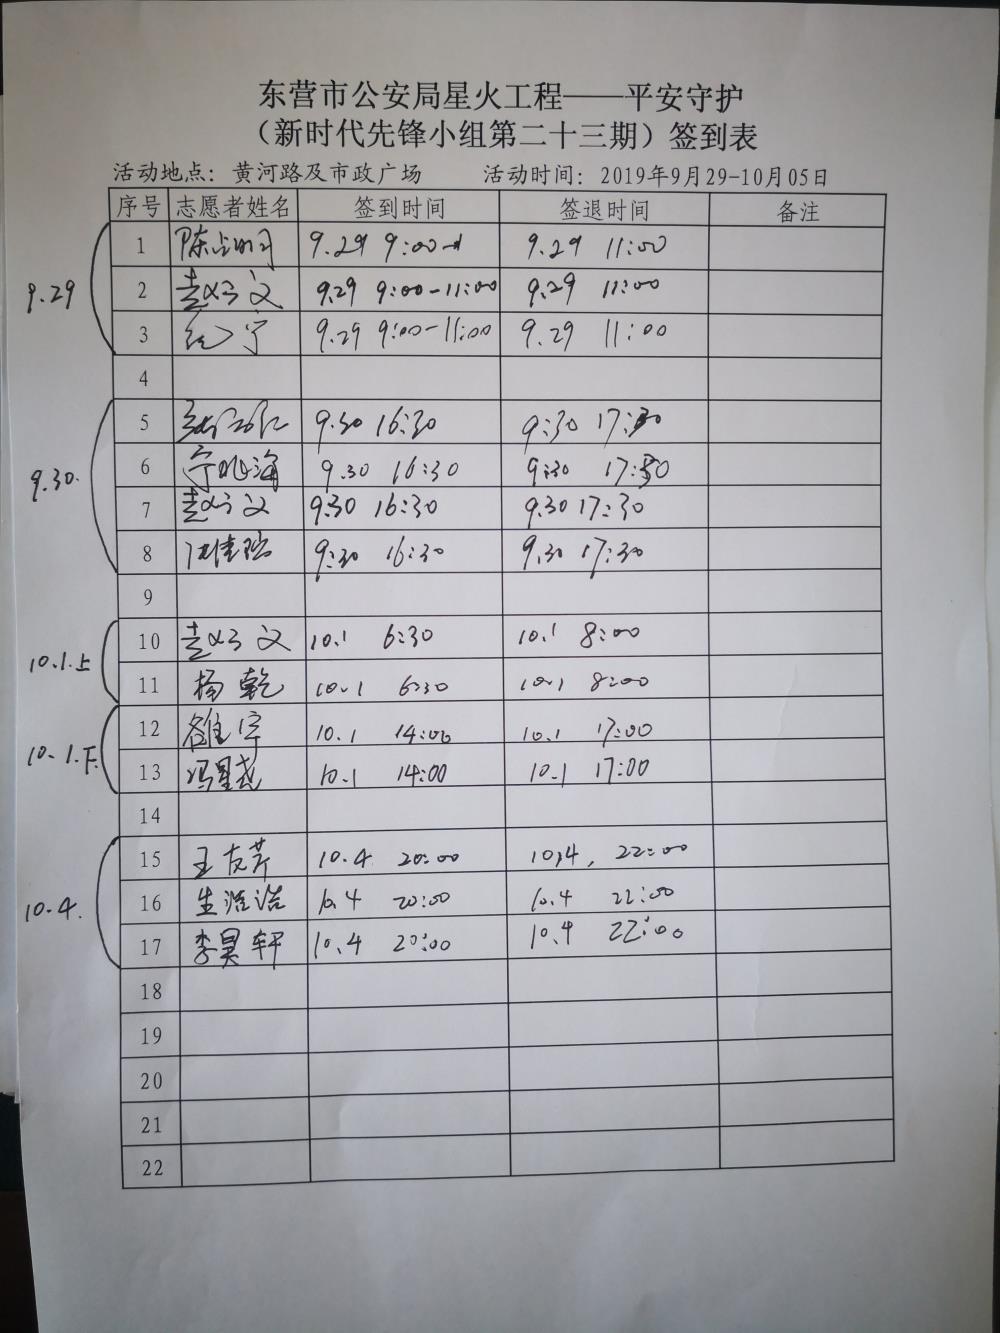 东营市公安局星火工程——平安守护
（新时代先锋小组第二十三期）签到表
活动地点：黄河路及市政广场 活动时间：2019年9月29-10月05日
序号 志愿者姓名 签到时间 签退时间 备注
9.29
1 9.29 9:00 9.29 11:00
2 9.29 9:00-11:00 9.29 11:00
3 9.29 9:00-11:00 9.29 11:00
4
9.30.
5 9.30 16:30 9:30 17:30
6 9.30 16:30 9:30 17:30
7 9:30 16:30 9.30 17:30
8 9:30 16:30 9.30 17:30
9
10.1.上
10 10.1 6:30 10.1 8:00
11 杨乾 10.1 6:30 10.1 8:00
10.1.下.
12 10.1 14:00 10.1 17:00
13 冯星尧 10.1 14:00 10.1 17:00
14
10.4.
15 王友芹 10.4 20:00 10.4, 22:00
16 生浩浩 10.4 20:00 10.4 22:00
17 李昊轩 10.4 20:00 10.4 22:00
18
19
20
21
22